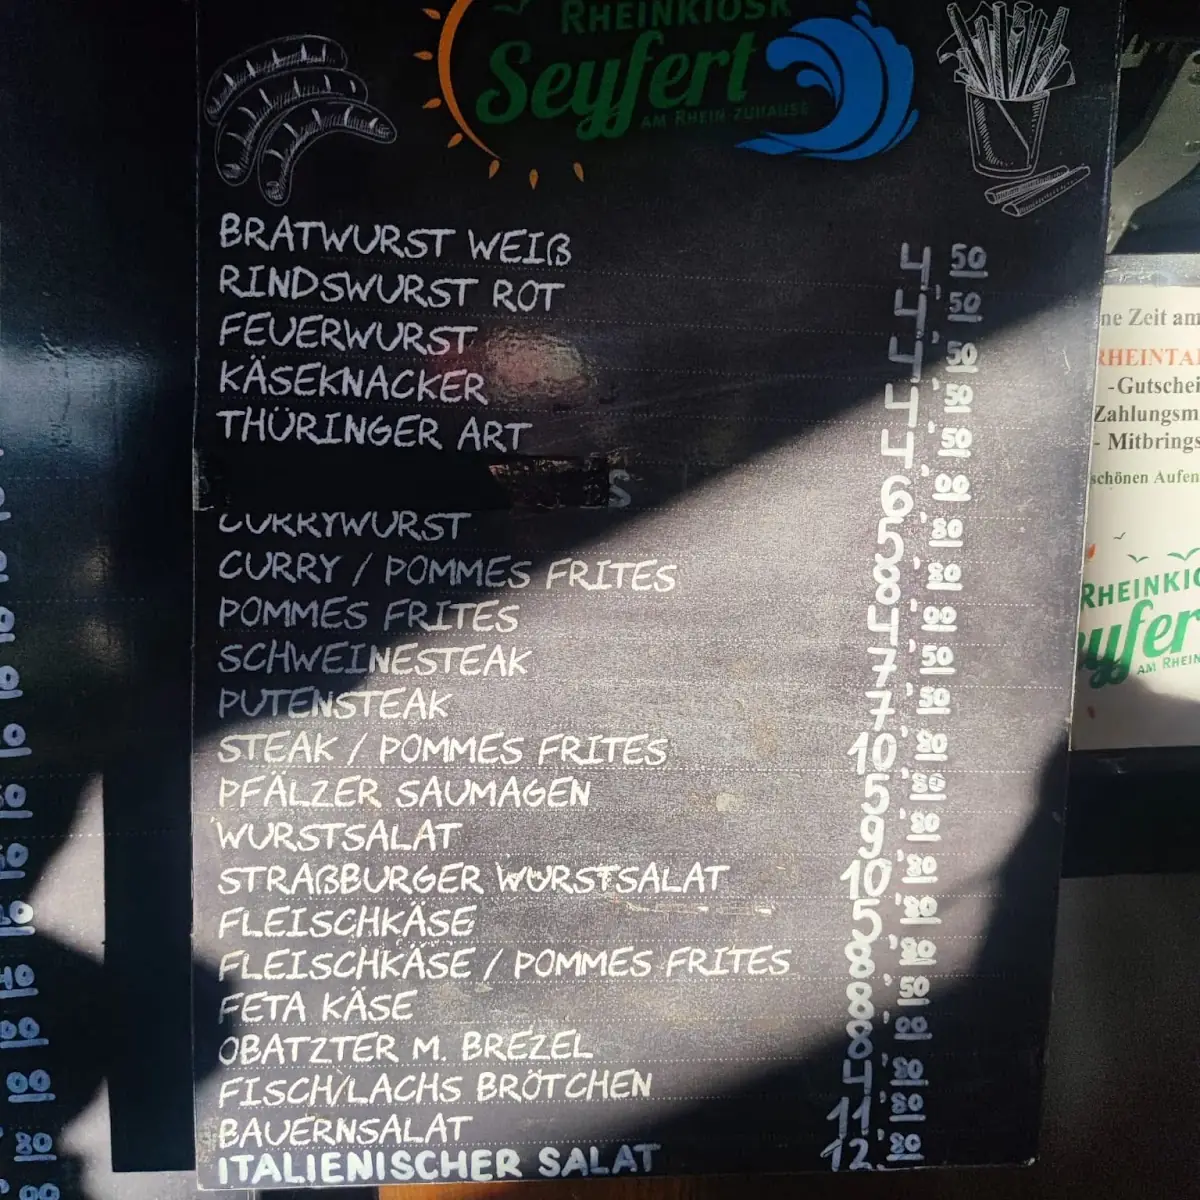 RHEINKIOSK
Seyfert
AM RHEIN ZUHAUSE
BRATWURST WEIß 4,50
RINDSWURST ROT 4,50
FEUERWURST 4,50
KÄSEKNACKER 4,50
THÜRINGER ART 4,50
S 6,00
CURRYWURST 5,80
CURRY / POMMES FRITES 8,80
POMMES FRITES 4,00
SCHWEINESTEAK 7,50
PUTENSTEAK 7,50
STEAK / POMMES FRITES 10,80
PFÄLZER SAUMAGEN 5,80
WURSTSALAT 9,80
STRAßBURGER WURSTSALAT 10,80
FLEISCHKÄSE 5,80
FLEISCHKÄSE / POMMES FRITES 8,80
FETA KÄSE 8,50
OBATZTER M. BREZEL 8,00
FISCH/LACHS BRÖTCHEN 4,80
BAUERNSALAT 11,80
ITALIENISCHER SALAT 12,80
ne Zeit am
RHEINTA
-Gutschei
Zahlungsm
- Mitbrings
schönen Aufen
RHEINKIO
eyfer
AM RHEIN